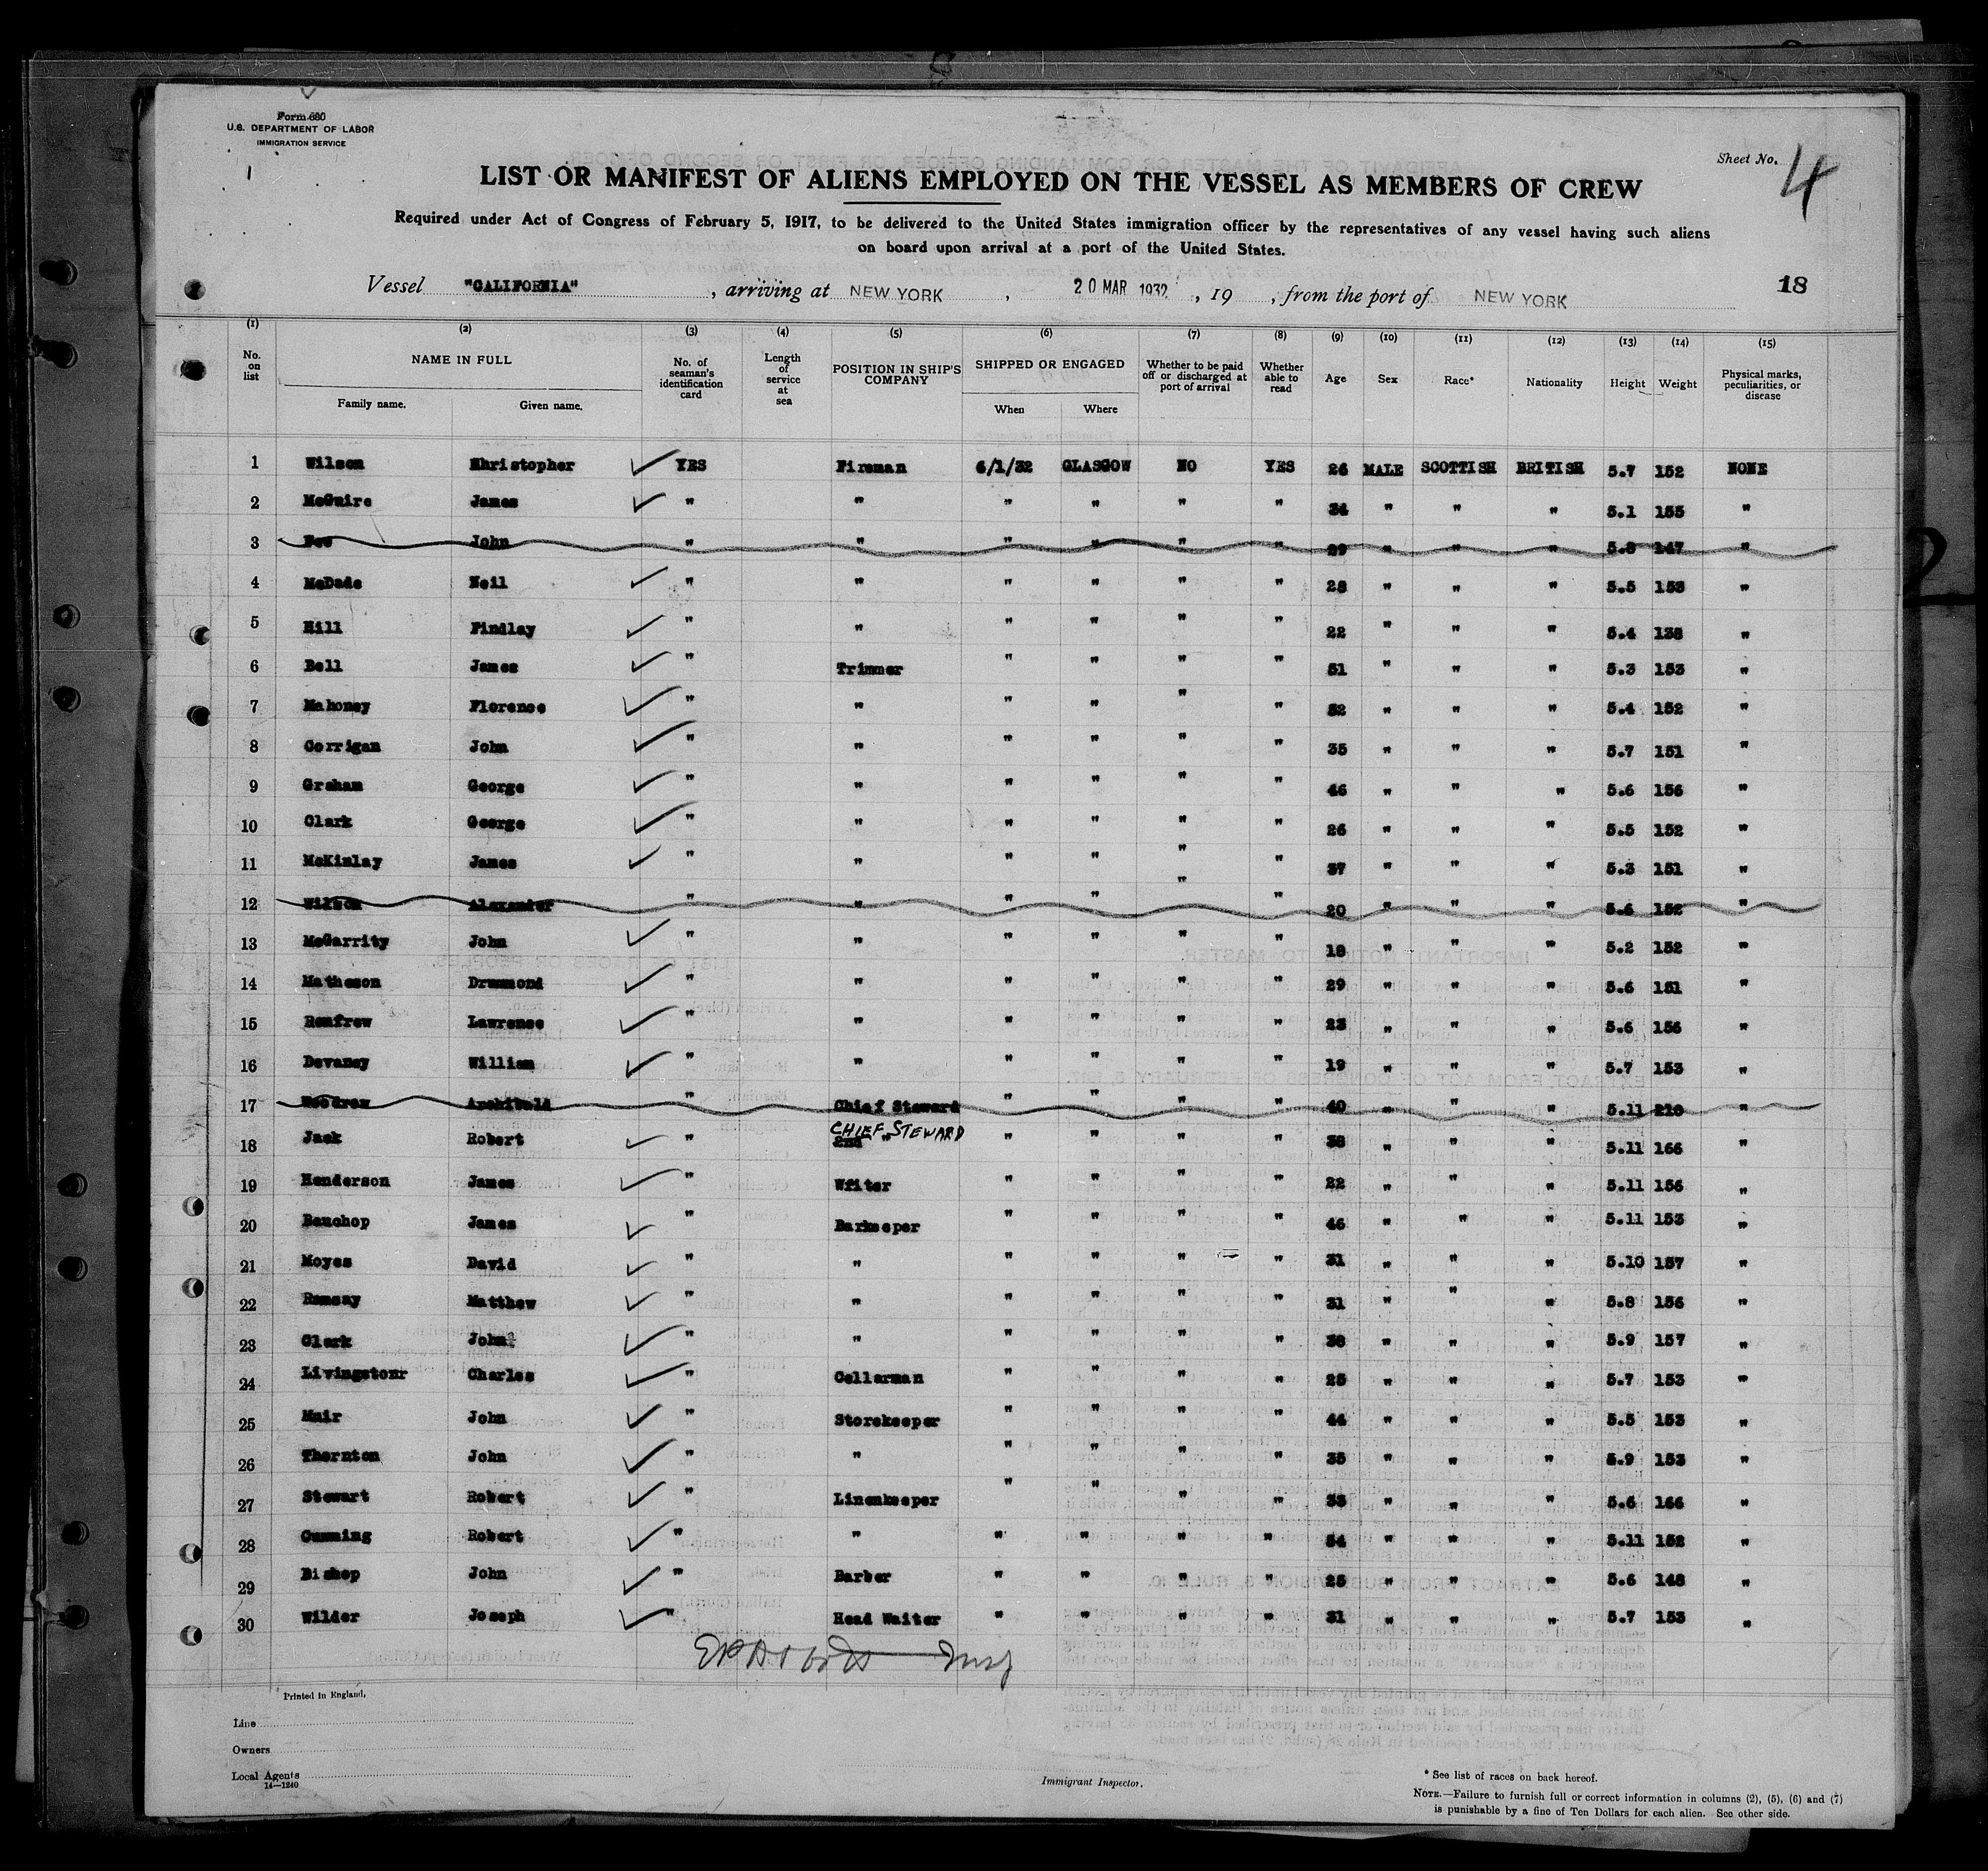 Form 680
U.S. DEPARTMENT OF LABOR
IMMIGRATION SERVICE
Sheet No. 4
LIST OR MANIFEST OF ALIENS EMPLOYED ON THE VESSEL AS MEMBERS OF CREW
Required under Act of Congress of February 5, 1917, to be delivered to the United States immigration officer by the representatives of any vessel having such aliens
on board upon arrival at a port of the United States.
Vessel "CALIFORNIA", arriving at NEW YORK, 20 MAR 1932, 19 , from the port of NEW YORK 18
(1) (2) (3) (4) (5) (6) (7) (8) (9) (10) (11) (12) (13) (14) (15)
No. on list NAME IN FULL Family name. Given name. No. of seaman's identification card Length of service at sea POSITION IN SHIP'S COMPANY SHIPPED OR ENGAGED When Where Whether to be paid off or discharged at port of arrival Whether able to read Age Sex Race* Nationality Height Weight Physical marks, peculiarities, or disease
1 Wilson Khristopher ✓ YES Fireman 6/1/32 GLASGOW NO YES 26 MALE SCOTTISH BRITISH 5.7 152 NONE
2 McGuire James ✓ " " " " " " 34 " " " 5.1 155 "
3 Fee John " " " " " " 29 " " " 5.8 147 "
4 McDade Neil ✓ " " " " " " 28 " " " 5.5 153 "
5 Hill Findlay ✓ " " " " " " 22 " " " 5.4 138 "
6 Bell James ✓ " Trimmer " " " " 51 " " " 5.3 153 "
7 Mahoney Florence ✓ " " " " " " 52 " " " 5.4 152 "
8 Corrigan John ✓ " " " " " " 35 " " " 5.7 151 "
9 Graham George ✓ " " " " " " 46 " " " 5.6 156 "
10 Clark George ✓ " " " " " " 26 " " " 5.5 152 "
11 McKinlay James ✓ " " " " " " 37 " " " 5.3 151 "
12 Wilson Alexander " " " " " " 20 " " " 5.6 152 "
13 McGarrity John ✓ " " " " " " 18 " " " 5.2 152 "
14 Matheson Drummond ✓ " " " " " " 29 " " " 5.6 151 "
15 Renfrew Lawrence ✓ " " " " " " 23 " " " 5.6 156 "
16 Devaney William ✓ " " " " " " 19 " " " 5.7 153 "
17 Woodrow Archibald " Chief Steward " " " " 40 " " " 5.11 210 "
18 Jack Robert ✓ " 2nd " CHIEF STEWARD " " " " 38 " " " 5.11 166 "
19 Henderson James ✓ " Writer " " " " 22 " " " 5.11 156 "
20 Bauchop James ✓ " Barkeeper " " " " 46 " " " 5.11 153 "
21 Moyes David ✓ " " " " " " 31 " " " 5.10 157 "
22 Ramsay Matthew ✓ " " " " " " 31 " " " 5.8 156 "
23 Clark John ✓ " " " " " " 38 " " " 5.9 157 "
24 Livingstonr Charles ✓ " Cellarman " " " " 25 " " " 5.7 153 "
25 Muir John ✓ " Storekeeper " " " " 44 " " " 5.5 153 "
26 Thornton John ✓ " " " " " " 35 " " " 5.9 153 "
27 Stewart Robert ✓ " Linenkeeper " " " " 33 " " " 5.6 166 "
28 Cumming Robert ✓ " " " " " " 54 " " " 5.11 152 "
29 Bishop John ✓ " Barber " " " " 25 " " " 5.6 148 "
30 Wilder Joseph ✓ " Head Waiter " " " " 31 " " " 5.7 153 "
Printed in England.
Line
Owners
Local Agents
14—1240
Immigrant Inspector.
* See list of races on back hereof.
NOTE.—Failure to furnish full or correct information in columns (2), (5), (6) and (7)
is punishable by a fine of Ten Dollars for each alien. See other side.